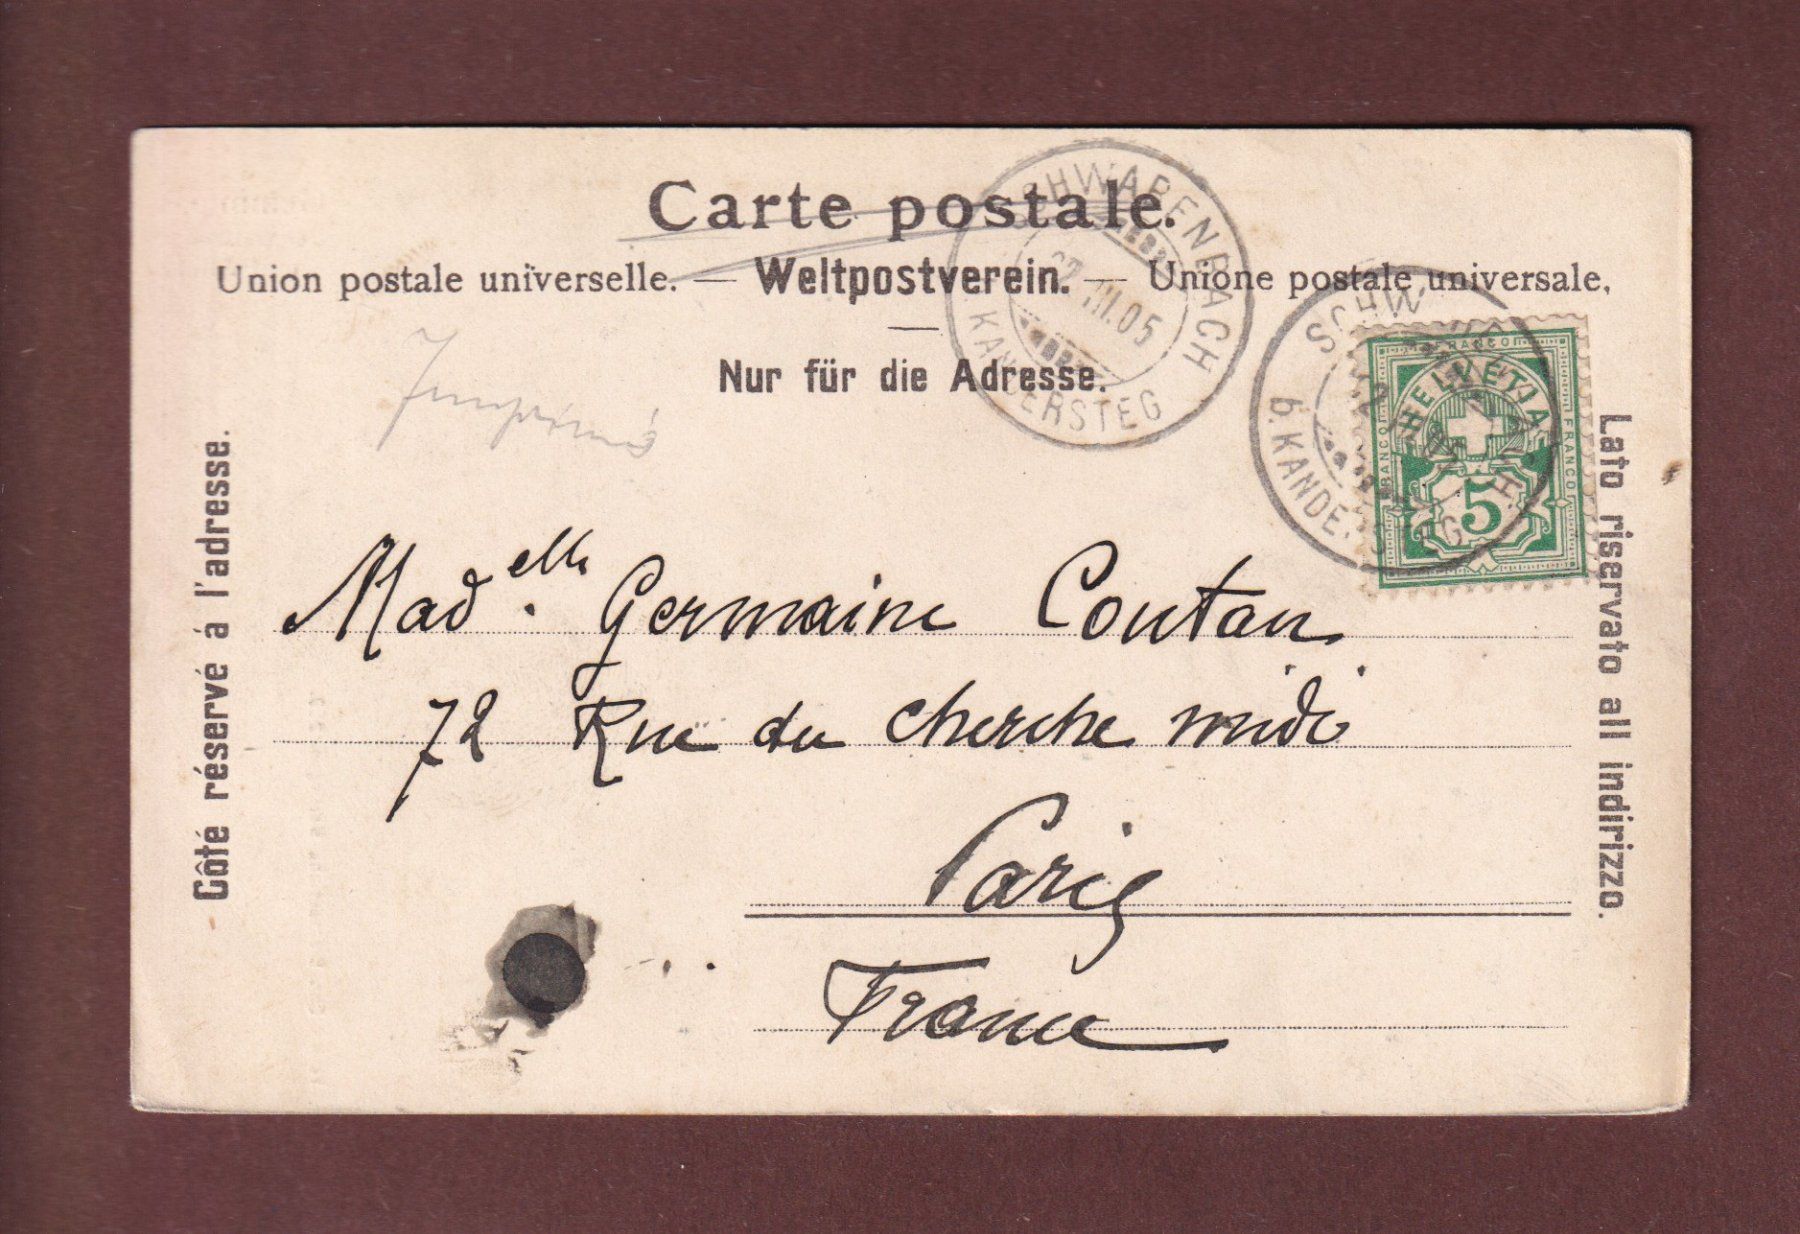 Carte postale.
Union postale universelle. — Weltpostverein. — Unione postale universale,
Nur für die Adresse.
Imprimé
Côté réservé á l'adresse.
Lato riservato all indirizzo.
SCHWARENBACH
VIII.05
KANDERSTEG
SCHW
b. KANDERSTEG
FRANCO
HELVETIA
FRANCO
FRANCO
5
Mad.elle Germaine Coutan
72 Rue du cherche midi
Paris
France